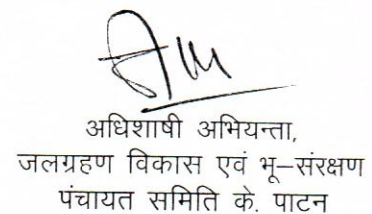 अधिशाषी अभियन्ता,
जलग्रहण विकास एवं भू–संरक्षण
पंचायत समिति के. पाटन